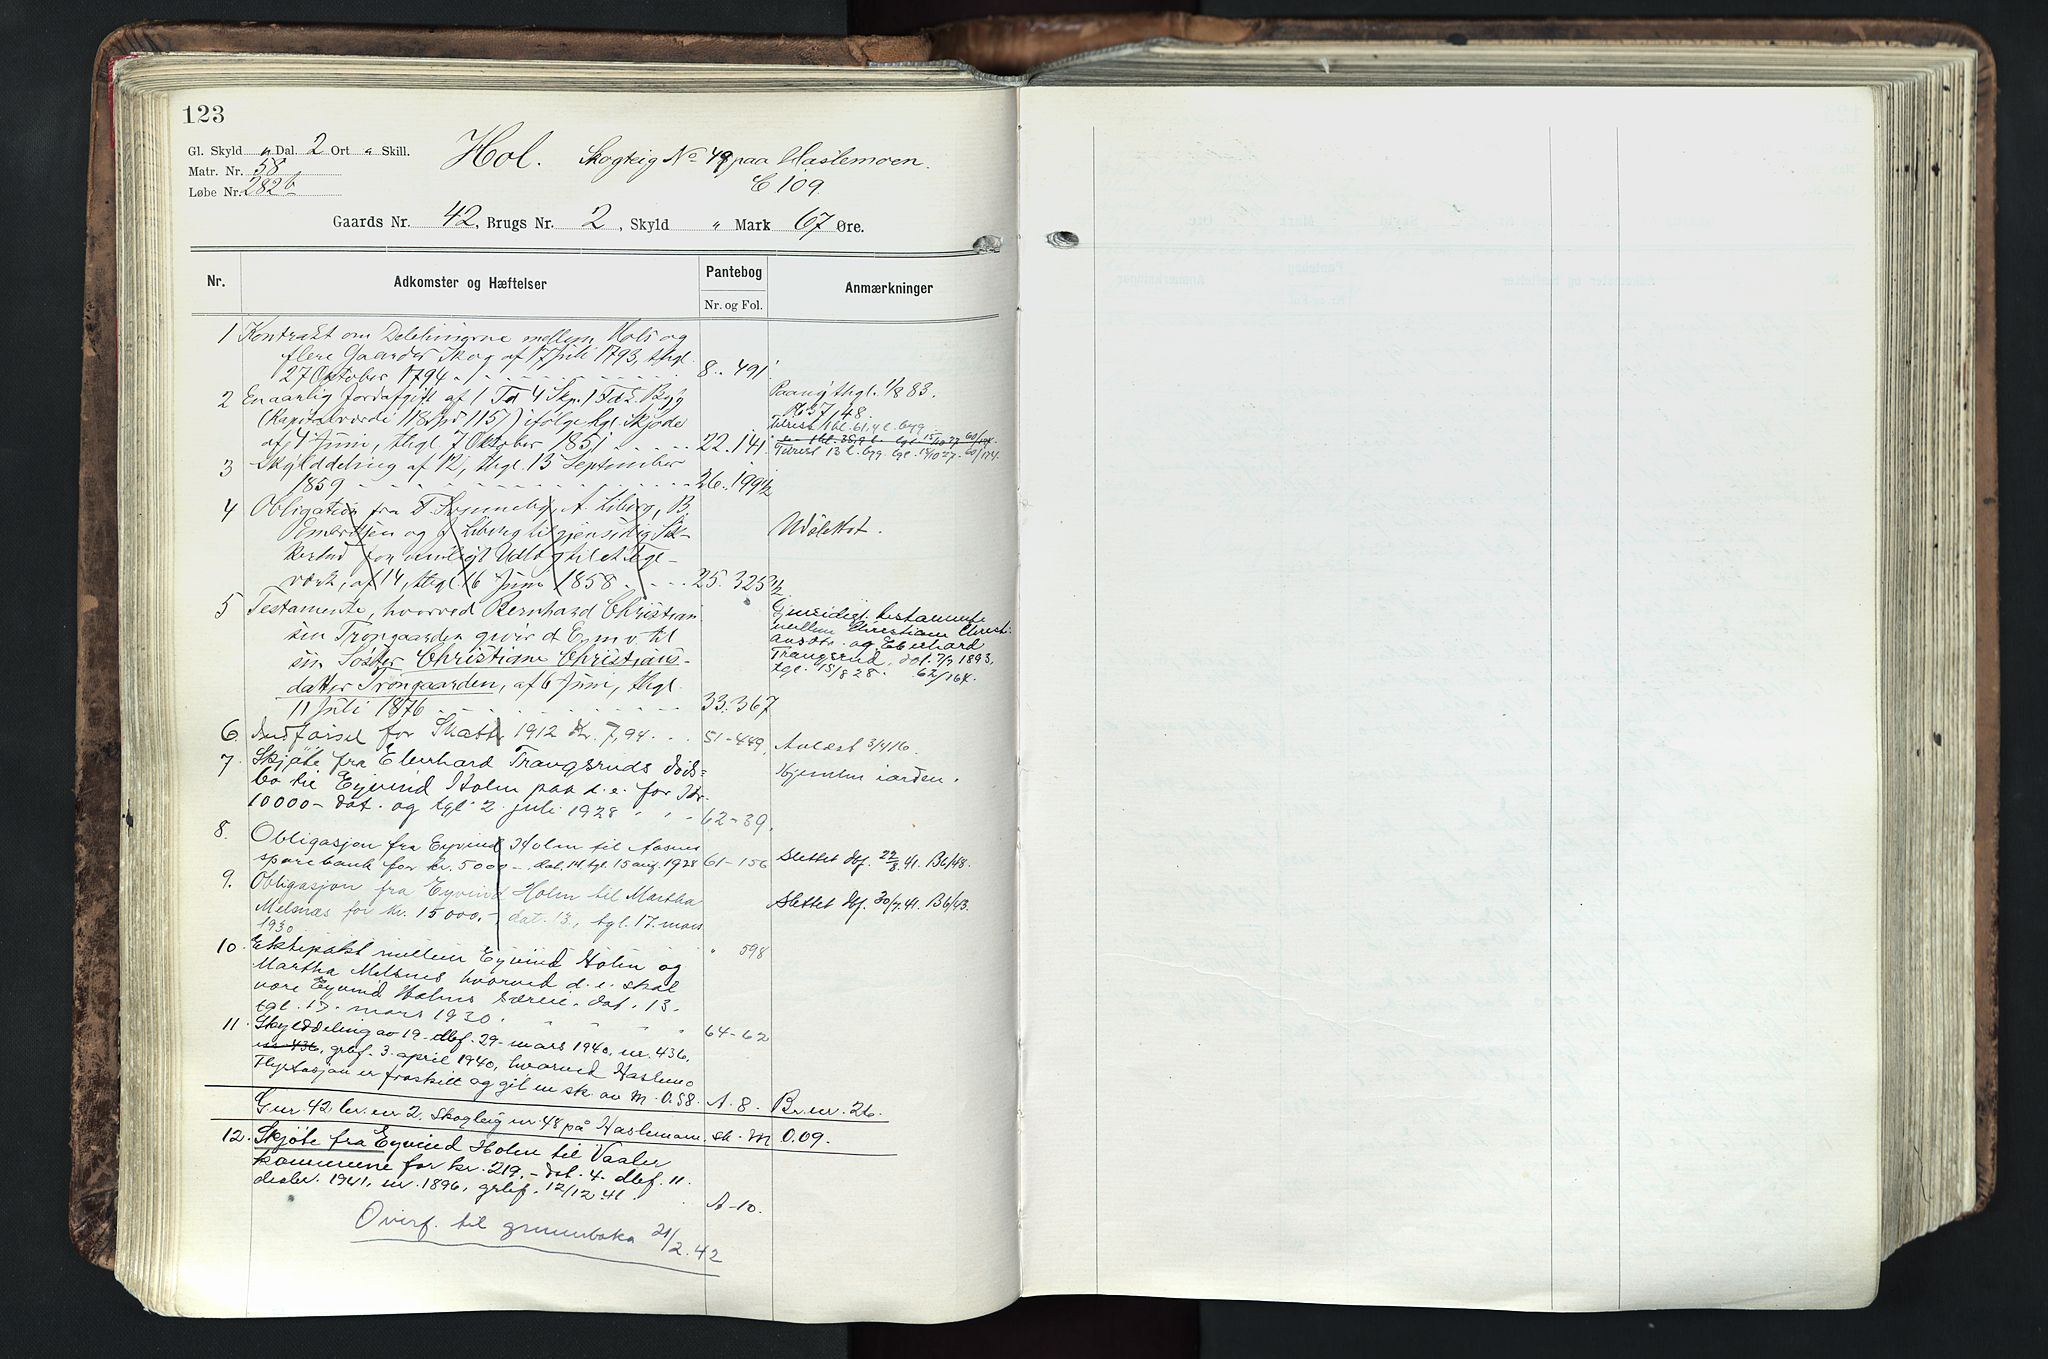 123
Gl. Skyld " Dal. 2 Ort " Skill.
Matr. Nr. 58
Løbe Nr. 282b
Hol. Skogteig No 49 paa Haslemoen.
C 109
Gaards Nr. 42, Brugs Nr. 2, Skyld " Mark 67 Øre.
Nr. Adkomster og Hæftelser Pantebog Anmærkninger
Nr. og Fol.
1 Kontrakt om Delelinierne mellem Hols og
flere Gaardes Skog af 17 Juli 1793, thgl.
27 Oktober 1794 8. 491
2 En aarlig Jordafgift af 1 Td 4 Skp. Byg
(Kapitalværdi 118 Spd 115) ifølge thgl. Skjøde
af 4 Juni, thgl. 7 Oktober 1851 22. 141
Paany thgl. 1/8 83.
No 37, 48.
Tilrest 1 hl. 61,4 l. byg
Tilrest 13 l. byg. tgl. 15/10 27. 60/174.
3 Skylddeling af 12, thgl. 13 September
1859 26. 199 1/2
4 Obligation fra T. Svenneby, A. Liberg, B.
Emertsen og J. Liberg til gjensidig Sik-
kerhed for muligt Udlæg til et Tegl-
værk, af 14, thgl. 16 Juni 1858 25. 325 1/2
Udslettet.
5 Testamente, hvorved Bernhard Christian
sen Trøngaarden giver d. Eiend. til
sin Søster Christiane Christians-
datter Trøngaarden, af 6 Juni, thgl.
11 Juli 1876 33. 367
Gjensidigt testamente
mellem Christiane Christi-
ansdtr. og Eberhard
Trangsrud, dat. 7/7 1893,
tgl. 15/8 28. 62/164.
6 Indførsel for Skatt 1912 Kr. 7,94 51-449, Avlæst 3/4 16
7. Skjøte fra Eberhard Trangsruds døds-
bo til Eyvind Holm paa d. e. for kr.
10000- dat. og tgl. 2. juli 1928 62-39.
Hjemmel i orden.
8. Obligasjon fra Eyvind Holm til Aasnes
sparebank for kr. 5000- dat. 14. tgl. 15 aug. 1928 61-156 Slettet dbf. 22/8. 41. B6/48.
9. Obligasjon fra Eyvind Holm til Martha
Melsnæs for kr. 15000,- dat. 13., tgl. 17. mars
1930 " 598
Slettet dbf. 30/7. 41. B6/43.
10. Ektepakt mellem Eyvind Holm og
Martha Melsnes hvorved d. e. skal
være Eyvind Holms særeie. dat. 13.
tgl. 17. mars 1930. 64-62
11. Skylddeling av 19. dbf. 29. mars 1940, nr. 436,
grbf. 3. april 1940, hvorved Haslemo
Flyстasjon er fraskilt og gitt en sk. av M. 0.58. A. 8. Br. nr. 26.
G. nr. 42 br. nr 2. Skogteig nr 48 på Haslemoen. sk. M 0.09.
12. Skjøte fra Eyvind Holm til Vaaler
kommune for kr. 219,- dat. 4. dbf. 11.
desbr. 1941, nr. 1896, grbf. 12/12 41. A-10.
Overf. til grunnboka 21/2. 42